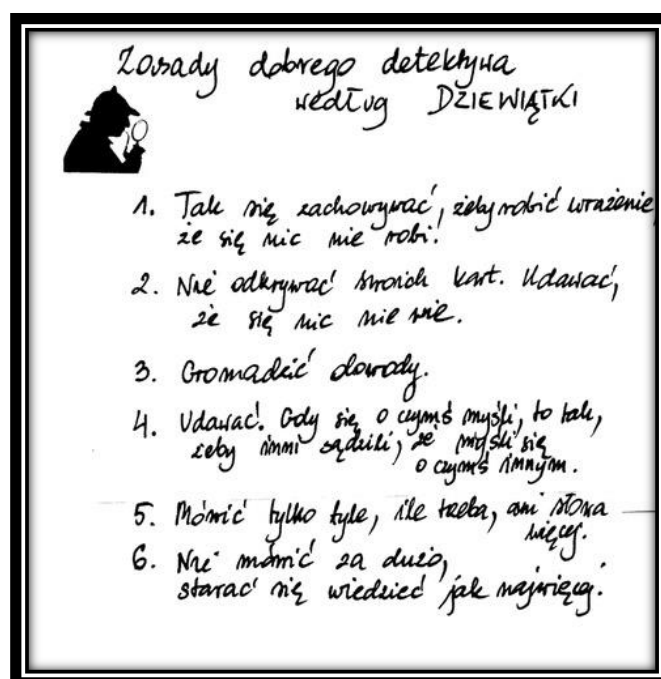 Zasady dobrego detektywa
według DZIEWIĄTKI
1. Tak się zachowywać, żeby robić wrażenie,
że się nic nie robi.
2. Nie odkrywać swoich kart. Udawać,
że się nic nie wie.
3. Gromadzić dowody.
4. Udawać. Gdy się o czymś myśli, to tak,
żeby inni sądzili, że myśli się
o czymś innym.
5. Mówić tylko tyle, ile trzeba, ani słowa
więcej.
6. Nie mówić za dużo,
starać się wiedzieć jak najwięcej.